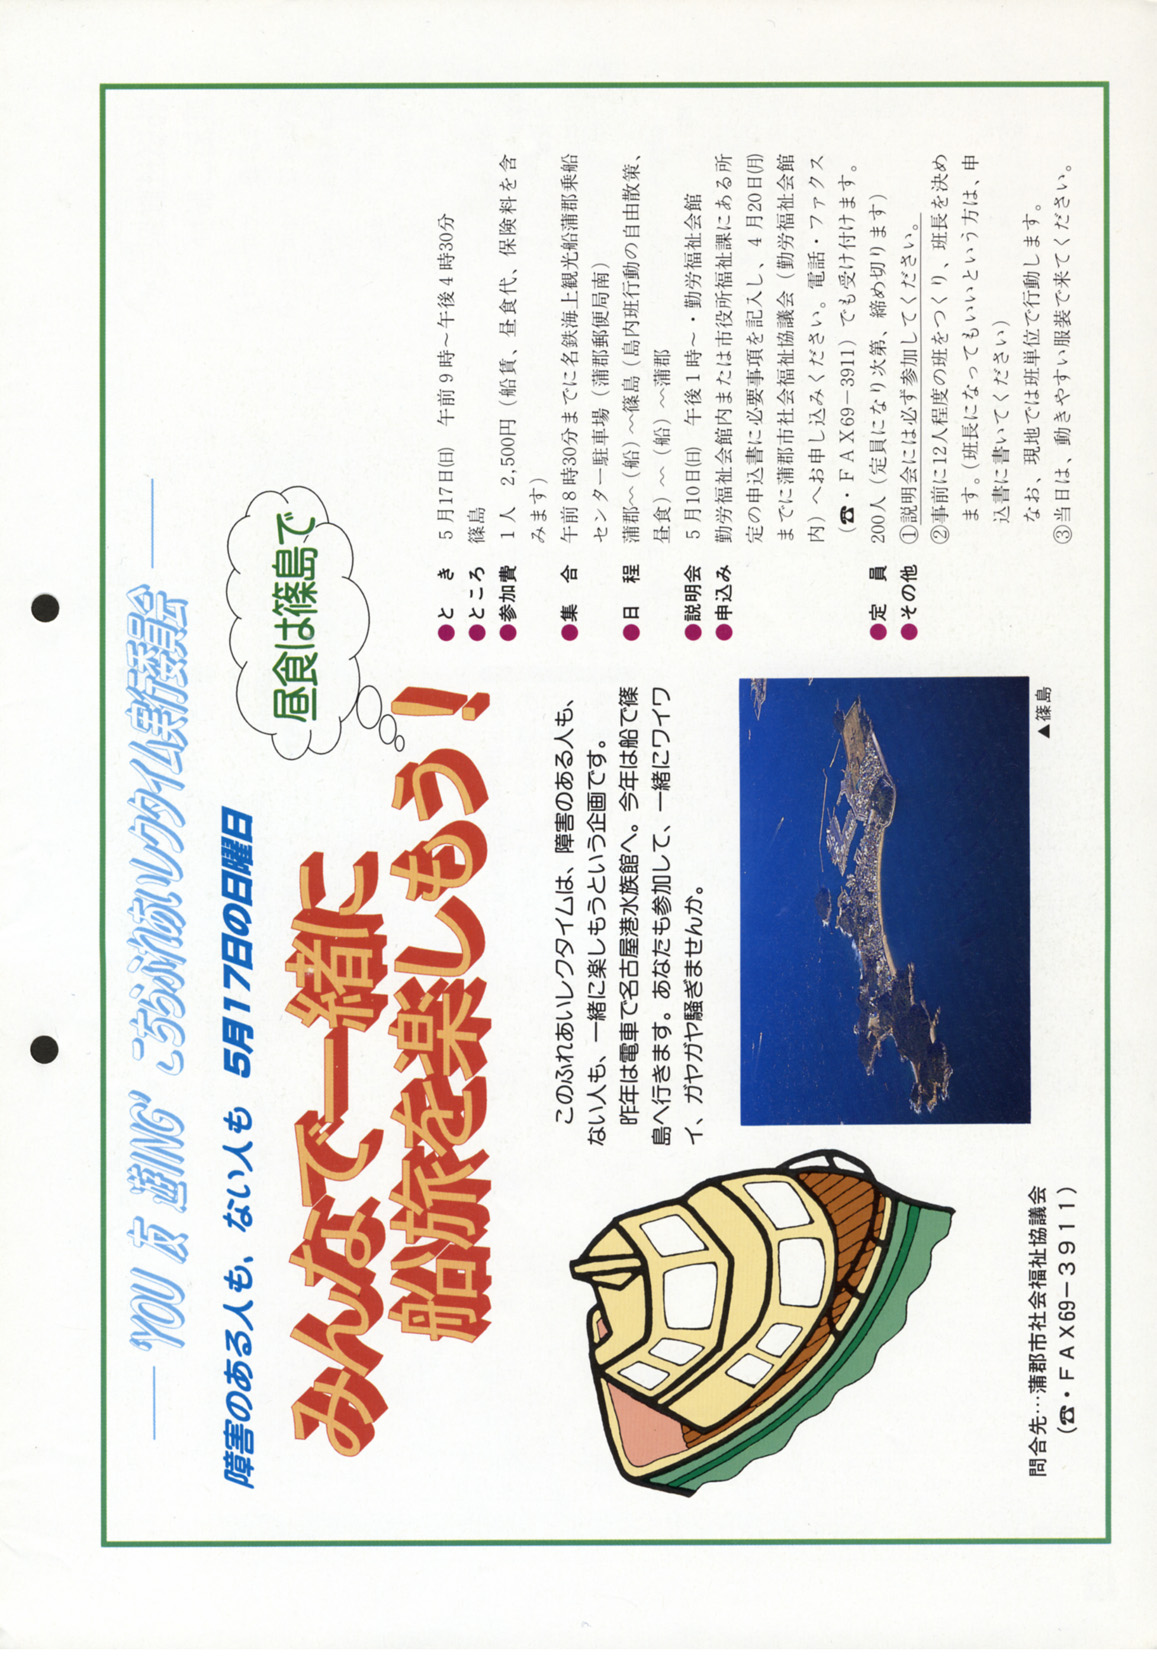 “YOU 友 遊ING” こちらふれあいレクタイム実行委員会
障害のある人も、ない人も 5月17日の日曜日
みんなで一緒に
船旅を楽しもう!
昼食は篠島で
このふれあいレクタイムは、障害のある人も、
ない人も、一緒に楽しもうという企画です。
昨年は電車で名古屋港水族館へ。今年は船で篠
島へ行きます。あなたも参加して、一緒にワイワ
イ、ガヤガヤ騒ぎませんか。
▲篠島
問合先…蒲郡市社会福祉協議会
(☎・FAX69−3911)
●と き 5月17日(日) 午前9時〜午後4時30分
●ところ 篠島
●参加費 1人 2,500円(船賃、昼食代、保険料を含
みます)
●集 合 午前8時30分までに名鉄海上観光船蒲郡乗船
センター駐車場(蒲郡郵便局南)
●日 程 蒲郡〜(船)〜篠島(島内班行動の自由散策、
昼食)〜(船)〜蒲郡
●説明会 5月10日(日) 午後1時〜・勤労福祉会館
●申込み 勤労福祉会館内または市役所福祉課にある所
定の申込書に必要事項を記入し、4月20日(月)
までに蒲郡市社会福祉協議会(勤労福祉会館
内)へお申し込みください。電話・ファクス
(☎・FAX69−3911)でも受け付けます。
●定 員 200人(定員になり次第、締め切ります)
●その他 ①説明会には必ず参加してください。
②事前に12人程度の班をつくり、班長を決め
ます。(班長になってもいいという方は、申
込書に書いてください)
なお、現地では班単位で行動します。
③当日は、動きやすい服装で来てください。